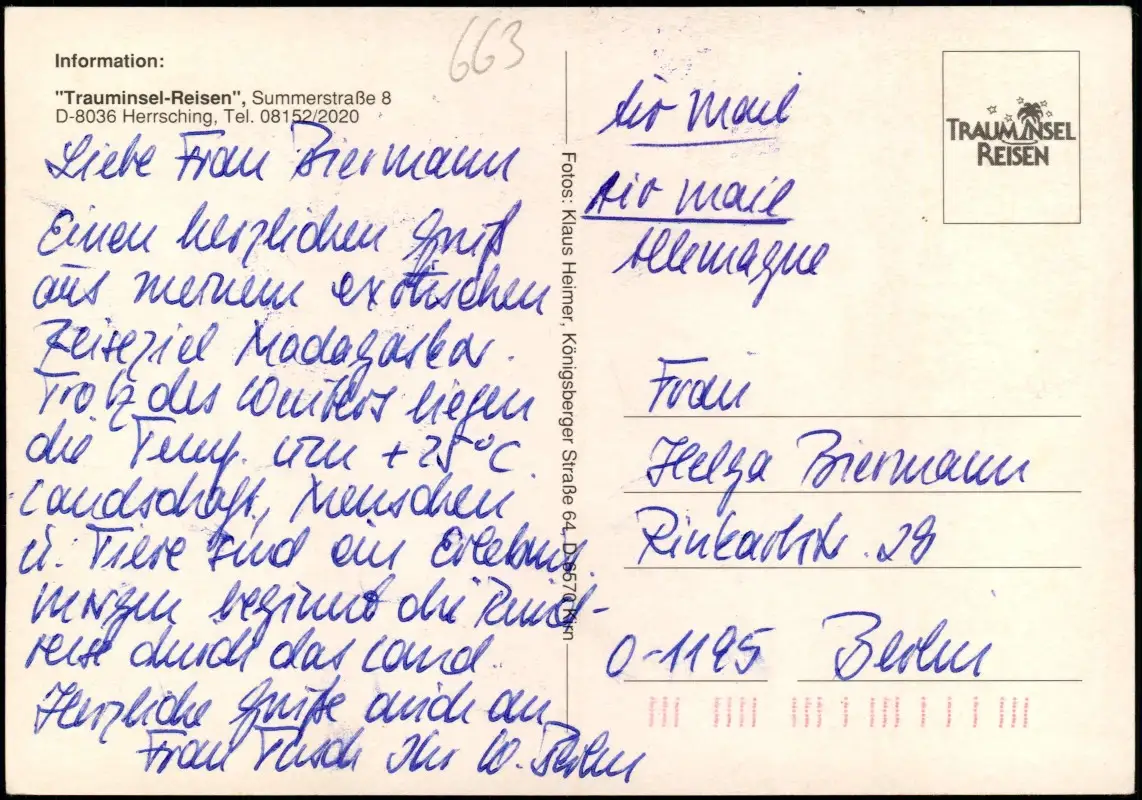 663
Information:
"Trauminsel-Reisen", Summerstraße 8
D-8036 Herrsching, Tel. 08152/2020
Liebe Frau Biermann
Einen herzlichen Gruß
aus meinem exotischen
Reiseziel Madagaskar.
Trotz des Winters liegen
die Temp. um + 25°C.
Landschaft, Menschen
u. Tiere sind ein Erlebnis
morgen beginnt die Rund-
reise durch das Land.
Herzliche Grüße auch an
Frau Ihr W.
Fotos: Klaus Heimer, Königsberger Straße 64, D-6570 Kirn
Air Mail
Air Mail
Allemagne
TRAUMINSEL
REISEN
Frau
Helga Biermann
Rinkartstr. 28
O-1195 Berlin